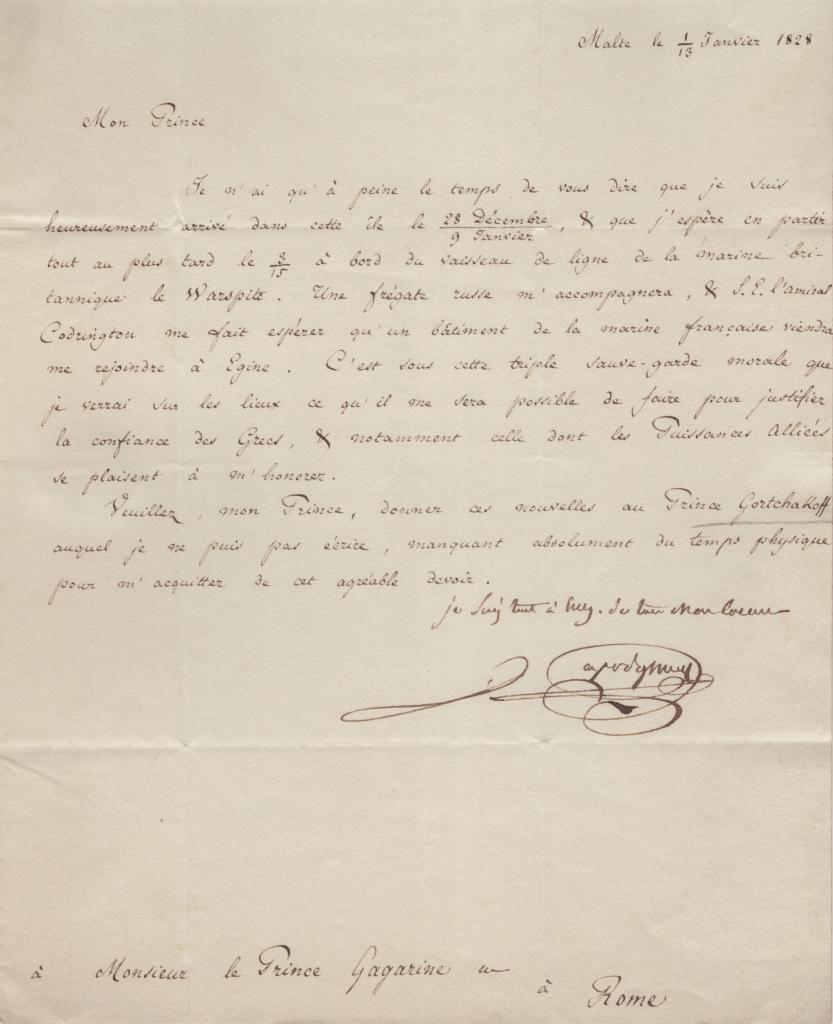 Malte le 1/13 Janvier 1828
Mon Prince
Je n'ai qu'à peine le temps de vous dire que je suis
heureusement arrivé dans cette île le 28 Décembre/9 Janvier, & que j'espère en partir
tout au plus tard le 3/15 à bord du vaisseau de ligne de la marine bri-
tannique le Warspite. Une frégate russe m'accompagnera, & S.E. l'amiral
Codrington me fait espérer qu'un bâtiment de la marine française viendra
me rejoindre à Egine. C'est sous cette triple sauve-garde morale que
je verrai sur les lieux ce qu'il me sera possible de faire pour justifier
la confiance des Grecs, & notamment celle dont les Puissances Alliées
se plaisent à m'honorer.
Veuillez, mon Prince, donner ces nouvelles au Prince Gortchakoff
auquel je ne puis pas écrire, manquant absolument du temps physique
pour m'acquitter de cet agréable devoir.
je suis tout à vous. de tout mon Coeur
à Monsieur le Prince Gagarine
à Rome